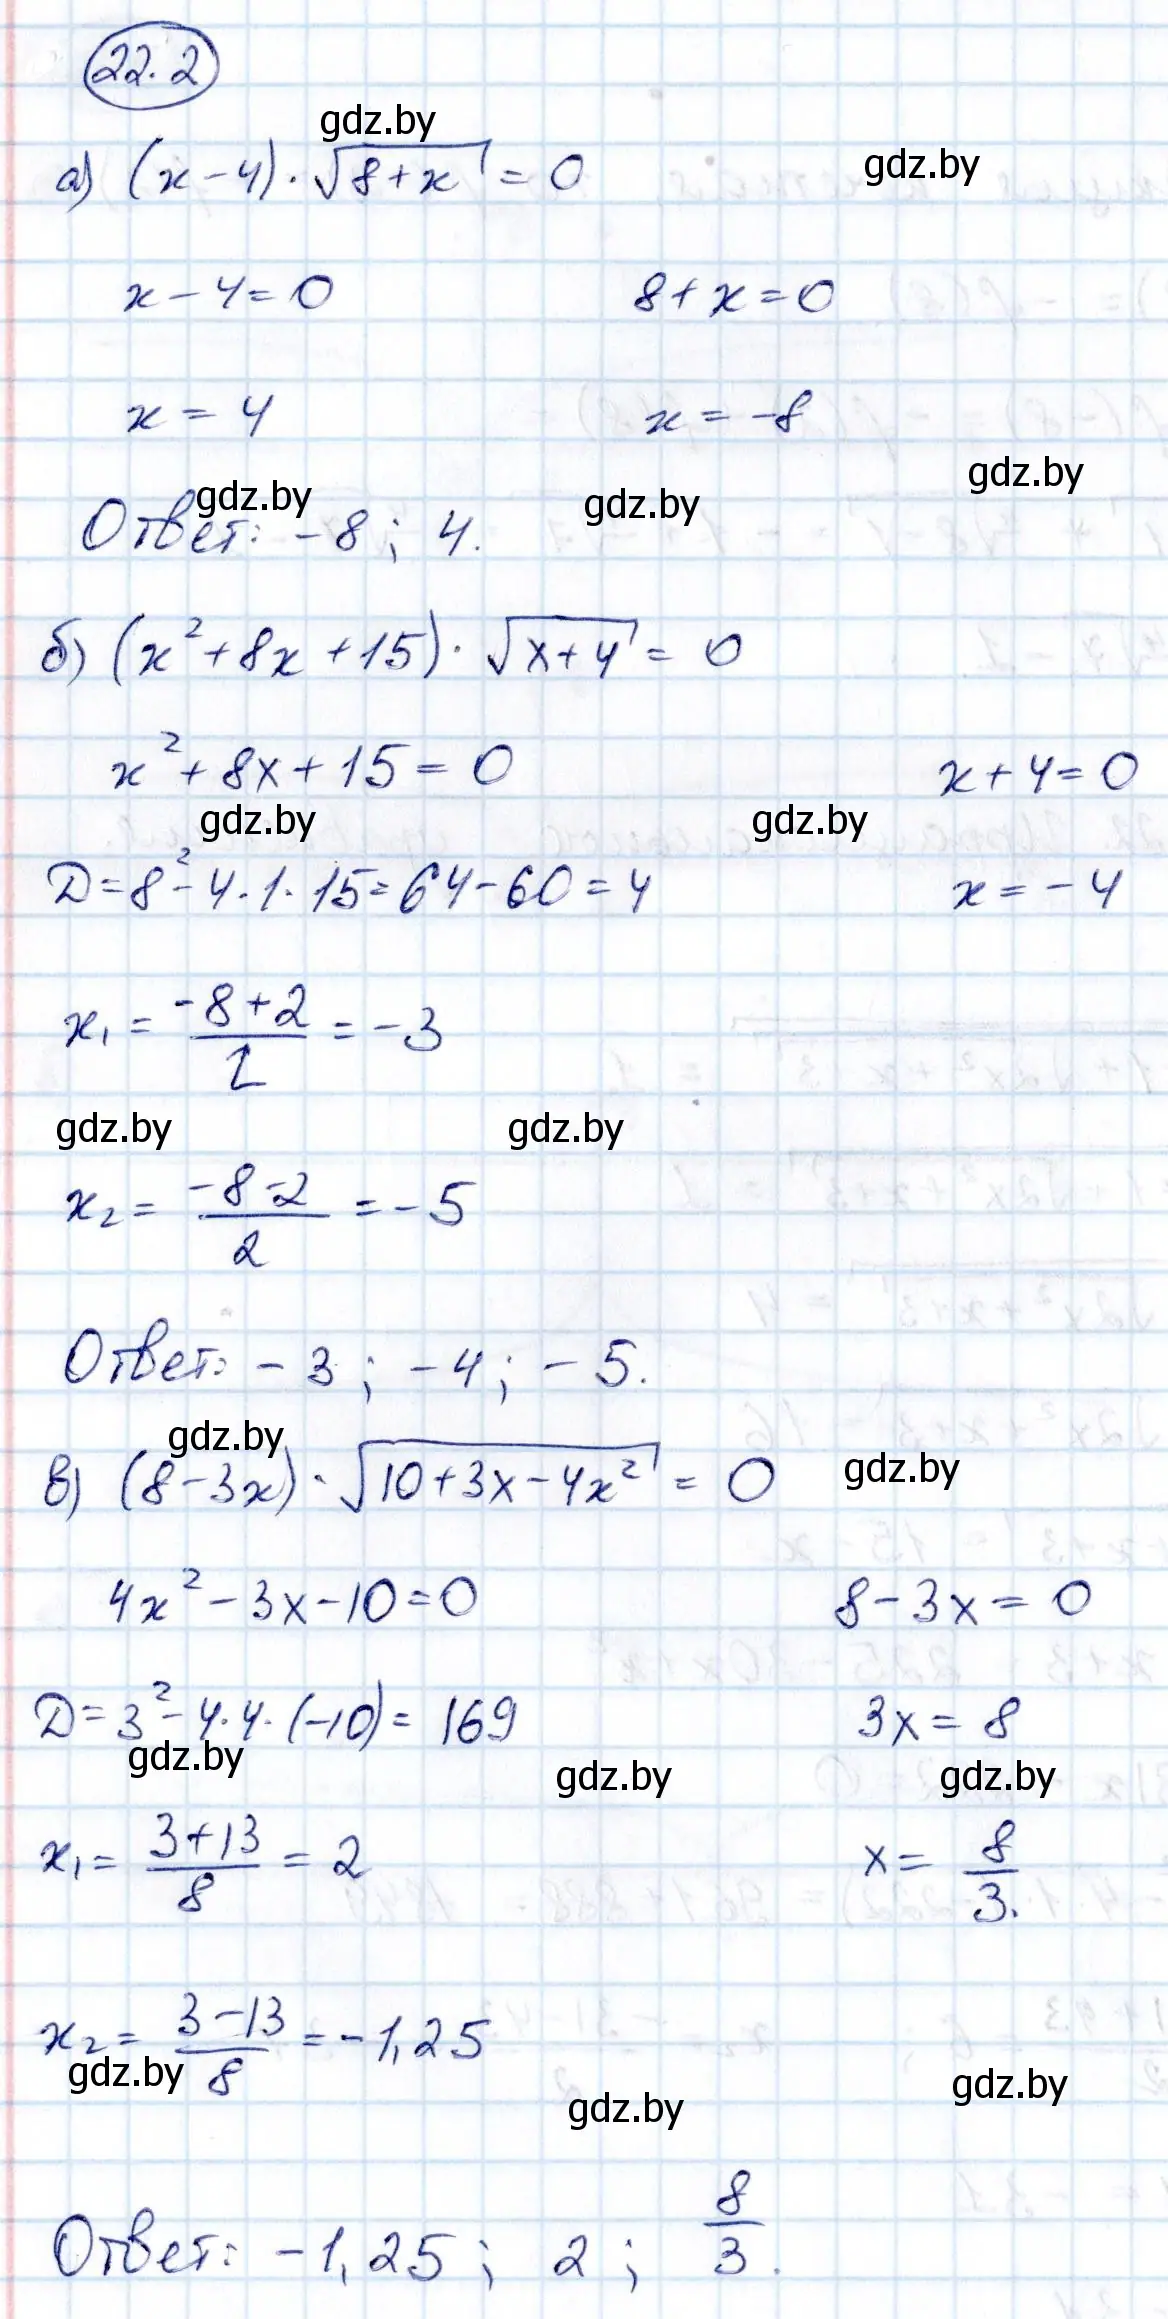 22.2
gdz.by
а) (x-4)·√(8+x) = 0
gdz.by
x-4=0 8+x=0
x = 4 x = -8
gdz.by
gdz.by
gdz.by
Ответ: -8; 4.
б) (x²+8x+15)·√(x+4) = 0
x²+8x+15=0 x+4=0
gdz.by
gdz.by
Д=8²-4·1·15=64-60=4 x=-4
x₁ = (-8+2)/2 = -3
gdz.by
gdz.by
x₂ = (-8-2)/2 = -5
Ответ: -3; -4; -5.
gdz.by
gdz.by
в) (8-3x)·√(10+3x-4x²) = 0
4x²-3x-10=0 8-3x=0
Д=3²-4·4·(-10)=169 3x=8
gdz.by
gdz.by
gdz.by
x₁ = (3+13)/8 = 2 x = 8/3.
x₂ = (3-13)/8 = -1,25
gdz.by
gdz.by
gdz.by
Ответ: -1,25; 2; 8/3.